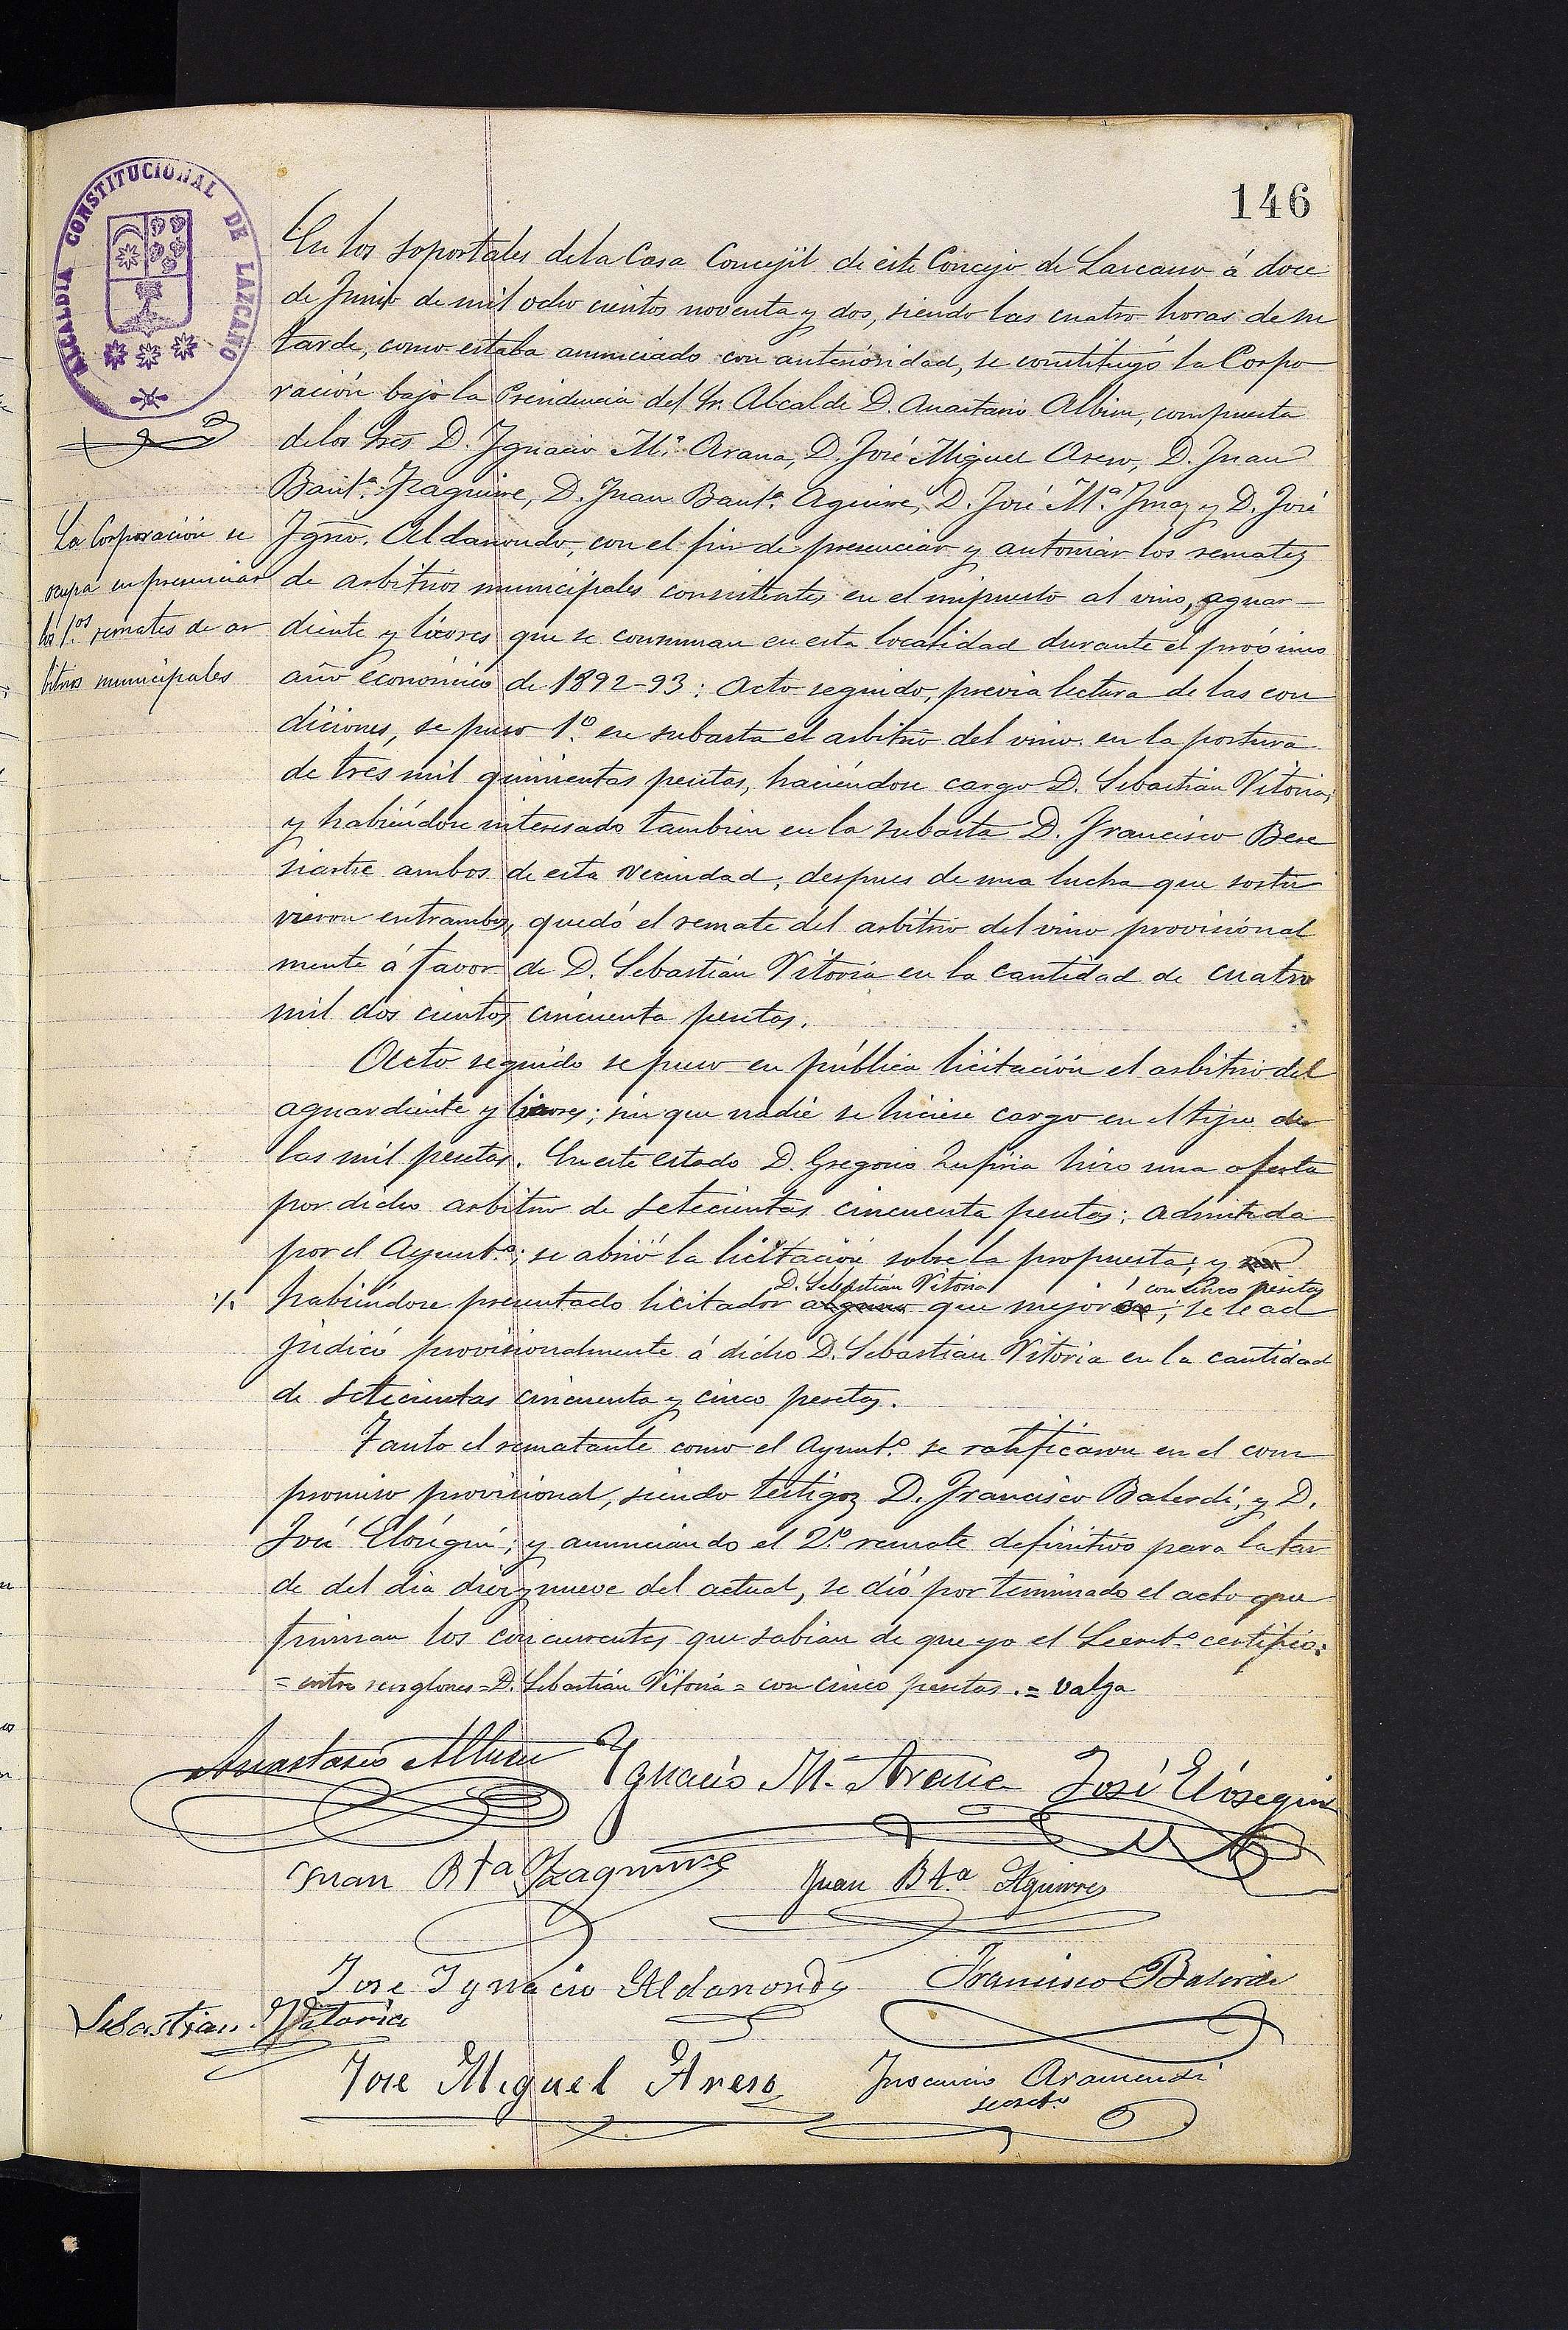 146
ALCALDIA CONSTITUCIONAL DE LAZCANO
En los soportales de la Casa Concejil de este Concejo de Lazcano á doce
de Junio de mil ocho cientos noventa y dos, siendo las cuatro horas de su
tarde, como estaba anunciado con anterioridad, se constituyó la Corpo
ración bajo la Presidencia del Sr. Alcalde D. Anastasio Albisu, compuesta
de los Sres D. Ygnacio M.ª Arana, D. José Miguel Areso, D. Juan
Baut.ª Yzaguirre, D. Juan Baut.ª Aguirre, D. José M.ª Ymaz y D. José
Ygnº. Aldanondo, con el fin de presenciar y autorizar los remates
de arbitrios municipales consistentes en el impuesto al vino, aguar-
diente y licores que se consuman en esta localidad durante el próximo
año económico de 1892-93: Acto seguido, previa lectura de las con
diciones, se puso 1.º en subasta el arbitrio del vino en la postura
de tres mil quinientas pesetas, haciéndose cargo D. Sebastián Vitoria;
y habiéndose interesado tambien en la subasta D. Francisco Bere
siartu ambos de esta vecindad, despues de una lucha que sostu
vieron entrambos, quedó el remate del arbitrio del vino provisional
mente á favor de D. Sebastián Vitoria en la cantidad de cuatro
mil dos cientos cincuenta pesetas.
Acto seguido se puso en pública licitación el arbitrio del
aguardiente y licores; sin que nadie se hiciese cargo en el tipo de
las mil pesetas. En este estado D. Gregorio Zufiria hizo una oferta
por dicho arbitrio de setecientas cincuenta pesetas; admitida
por el Ayunt.º; se abrió la licitación sobre la propuesta; y
D. Sebastián Vitoria con cinco pesetas
·/· habiéndose presentado licitador alguno que mejoró; se le ad
judicó provisionalmente á dicho D. Sebastián Vitoria en la cantidad
de setecientas cincuenta y cinco pesetas.
Tanto el rematante como el Ayunt.º se ratificaron en el com
promiso provisional, siendo testigos D. Francisco Balerdi, y D.
José Elósegui; y anunciando el 2.º remate definitivo para la tar
de del dia diez y nueve del actual, se dió por terminado el acto que
firman los concurrentes que sabian de que yo el Secret.º certifico:
= entre renglones = D. Sebastián Vitoria = con cinco pesetas. = valga
La Corporación se
ocupa en presenciar
los 1.os remates de ar
bitrios municipales
Anastasio Albisu Ygnacio M. Arana José Elósegui
Juan Bta Yzaguirre Juan Bt.ª Aguirre
Jose Ygnacio Aldanondo Francisco Balerdi
Sebastian Vitoria
Jose Miguel Areso Inocencio Aramendi
secret.º